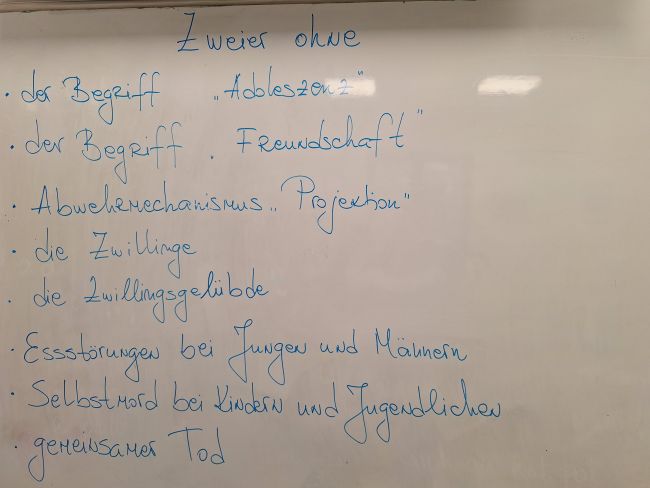 Zweier ohne
· der Begriff „Adoleszenz"
· der Begriff „Freundschaft"
· Abwehrmechanismus „Projektion"
· die Zwillinge
· die Zwillingsgelübde
· Essstörungen bei Jungen und Männern
· Selbstmord bei Kindern und Jugendlichen
· gemeinsamer Tod